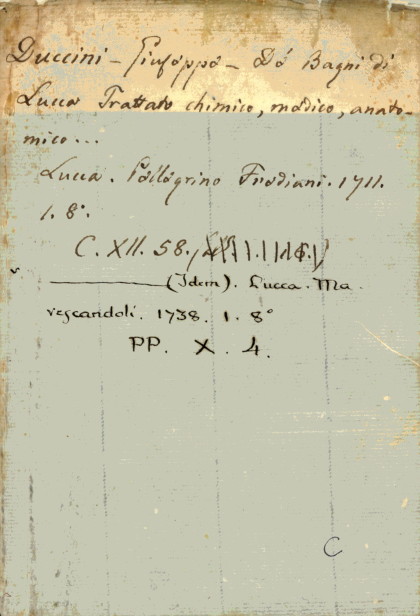 Duccini - Giuseppe - De' Bagni di
Lucca Trattato chimico, medico, anato-
mico...
Lucca. Pellegrino Frediani. 1711.
1. 8°.
C. XII. 58.
(Idem). Lucca. Ma
rescandoli. 1738. 1. 8°
PP. X. 4.
C